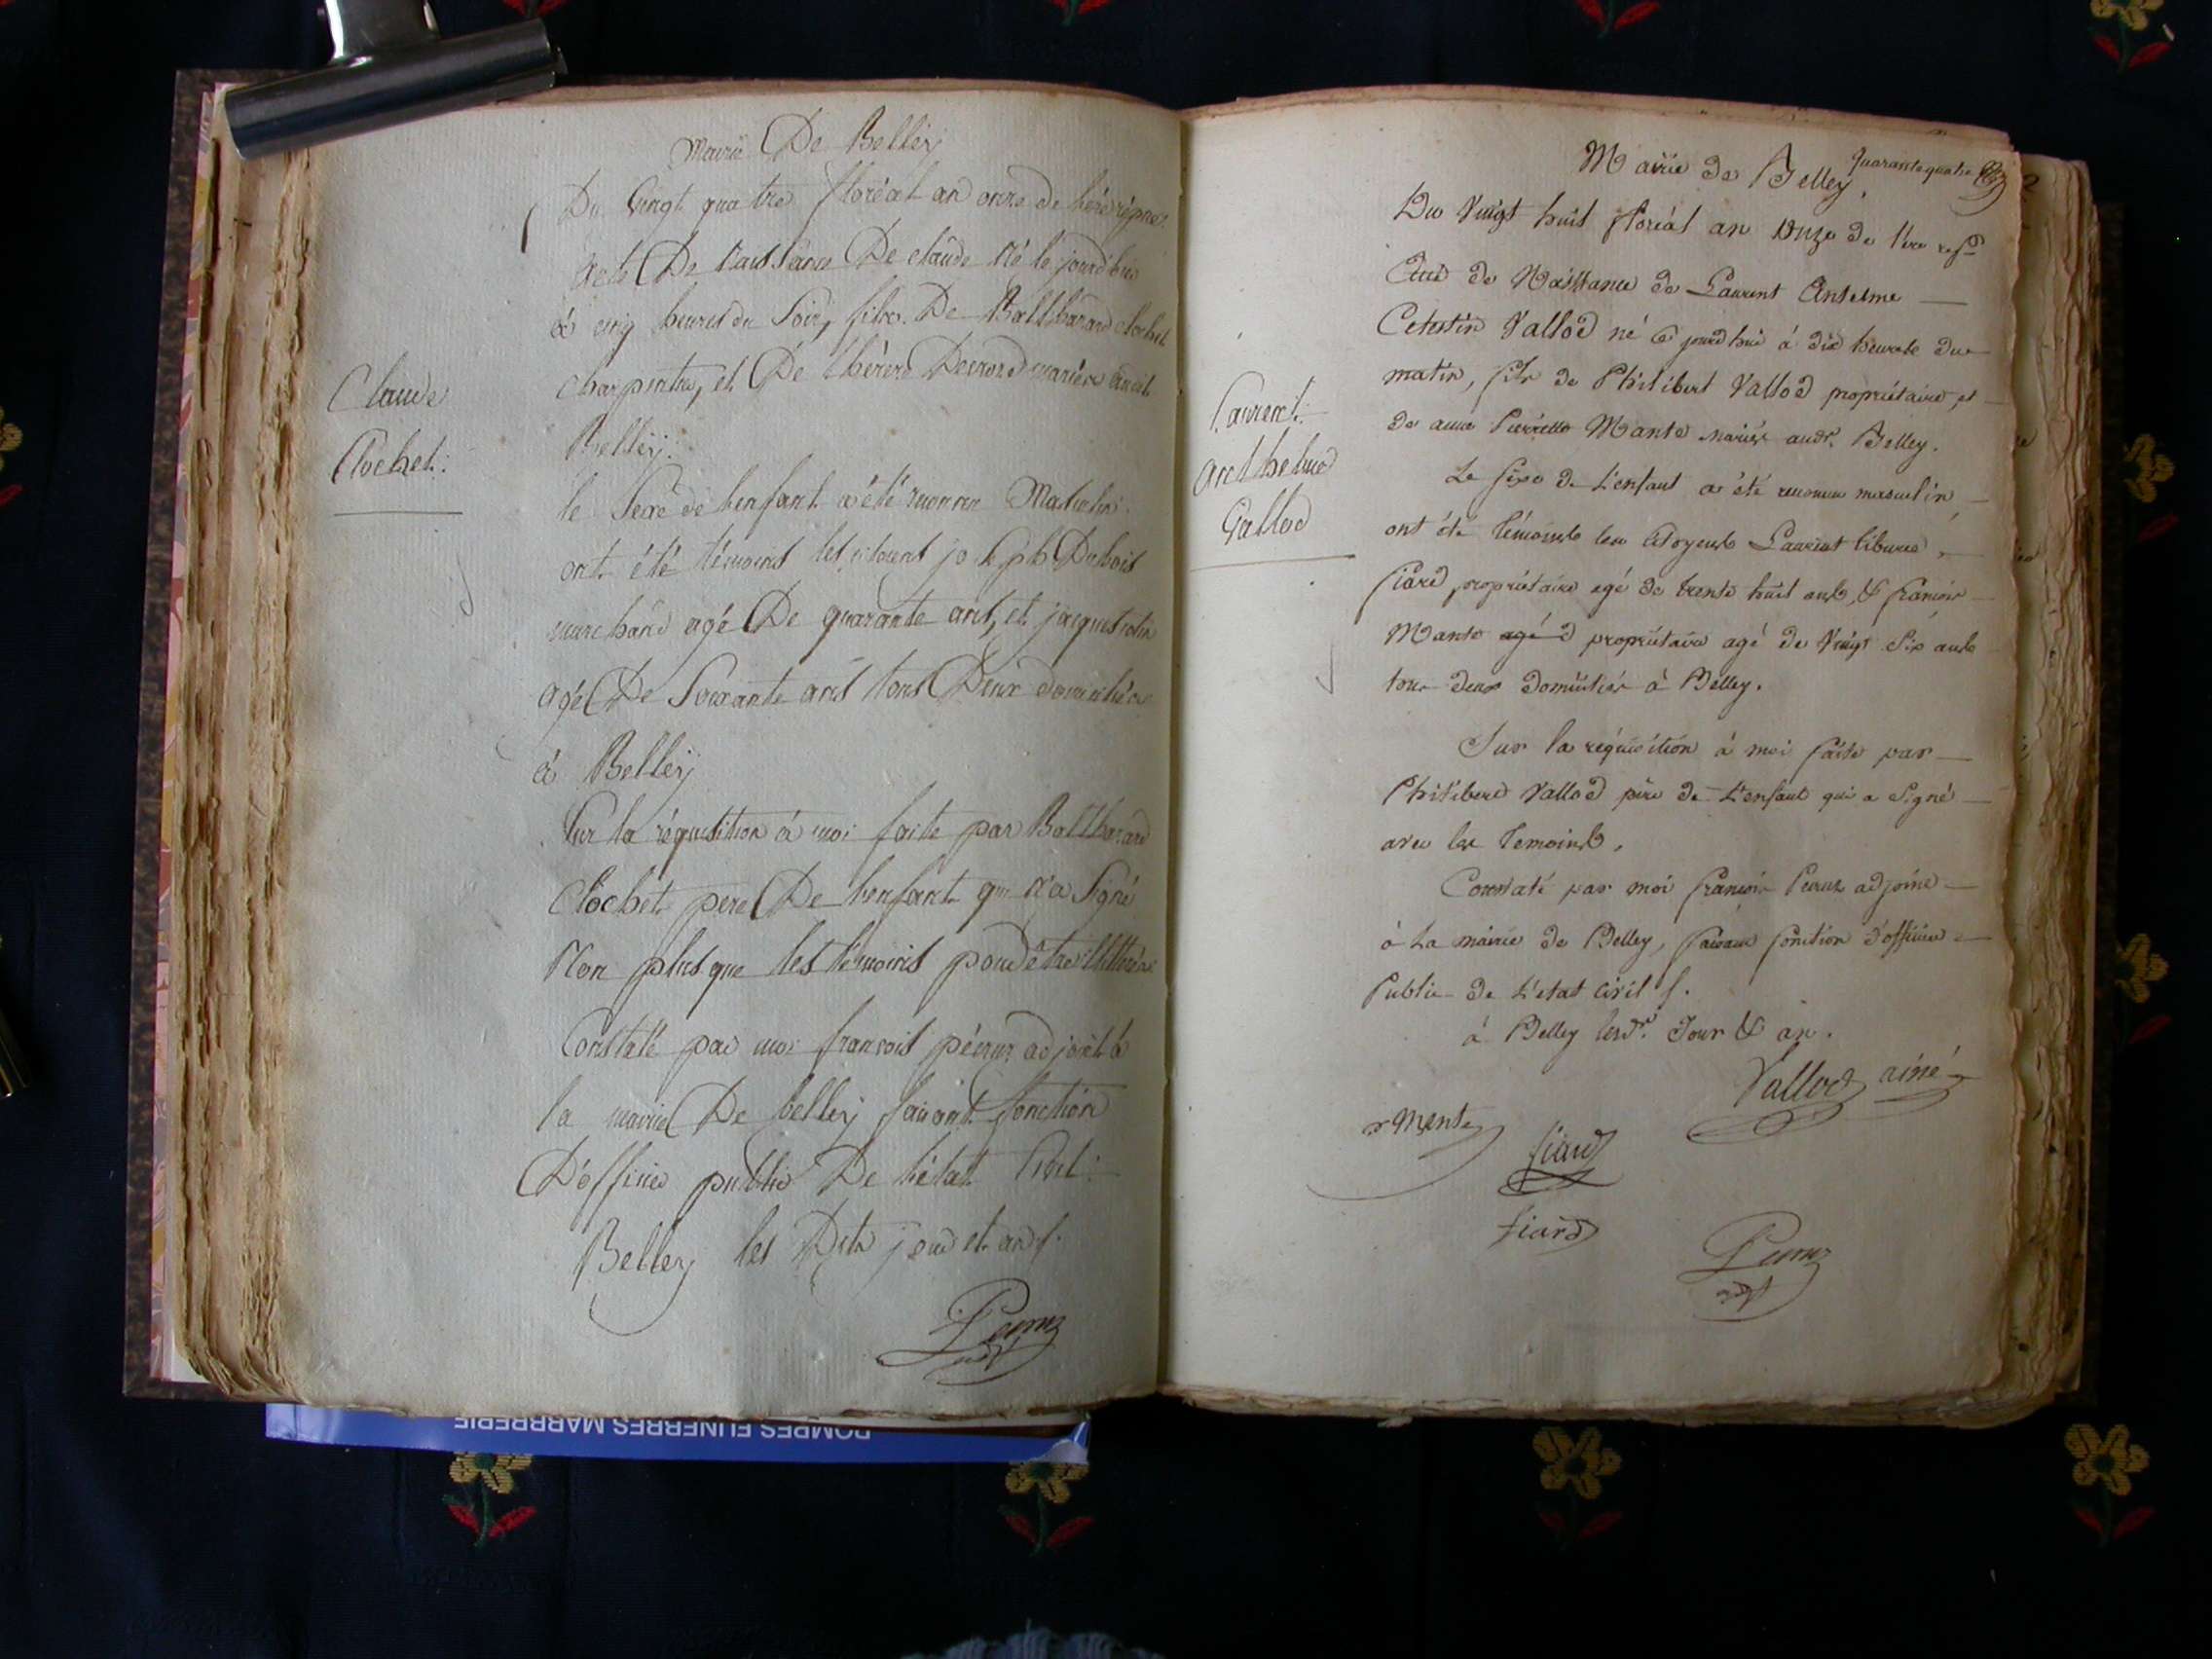 Mairie De Belley
Du Vingt quatre floréal an onze de l'ére répne.
Acte De Naissance De claude Né le jourd'hui
à cinq heures du Soir, fils De Balthazard clochet
charpentier, et De thérese mariés audit
Belley.
le Sexe de l'enfant a été reconnu Masculin
ont été témoins les citoyens joseph Dubois
marchand agé De quarante ans, et jacques
agé De Soixante ans tous Deux domiciliés
à Belley
Sur la réquisition à moi faite par Balthazard
Clochet pere De l'enfant qui n'a Signé
Non plus que les témoins pour être illitérés
Constaté par moi francois péernz adjoint à
la mairie De belley faisant fonction
D'officier public De l'état Civil.
Belley les Dits jour et an f.
Claude
Clochet.
Mairie de Belley.
quarante quatre
Du Vingt huit floréal an Onze de l'ére
Acte de Naissance de Laurent Antelme
Celestin Vallod né ce jourd'hui à dix heures du
matin, fils de Philibert Vallod propriétaire, et
de anne Pierrette Mante mariés audt. Belley.
Le sexe de L'enfant a été reconnu masculin
ont été témoins les Citoyens Laurent tiburce
fiard propriétaire agé de trente huit ans, & francois
Mante agé propriétaire agé de Vingt Six ans
tous deux domiciliés à Belley.
Sur la réquisition à moi faite par
Philibert Vallod père de L'enfant qui a Signé
avec les temoins.
Constaté par moi francois adjoint
à La mairie de Belley, faisant fonction d'officier
Public de L'etat civil f.
à Belley lesdts. Jour & an.
Laurent
anthelme
Vallod
Vallod ainé
Mante
fiard
fiard
POMPES FUNEBRES MARBRERIE